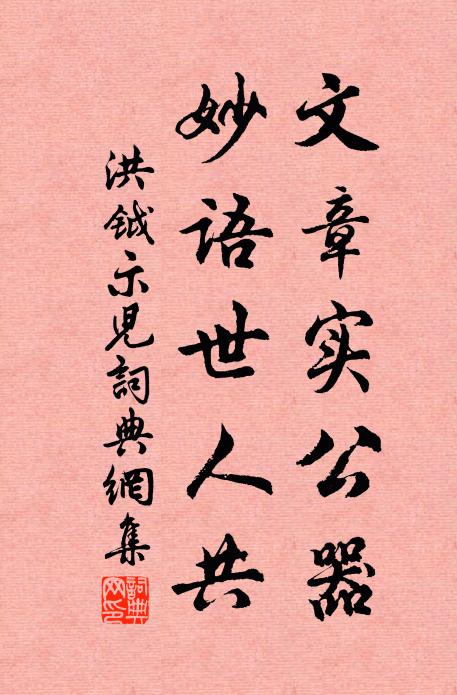 文章实公器
妙语世人共
洪钺示兒詞典網集
詞典
网印